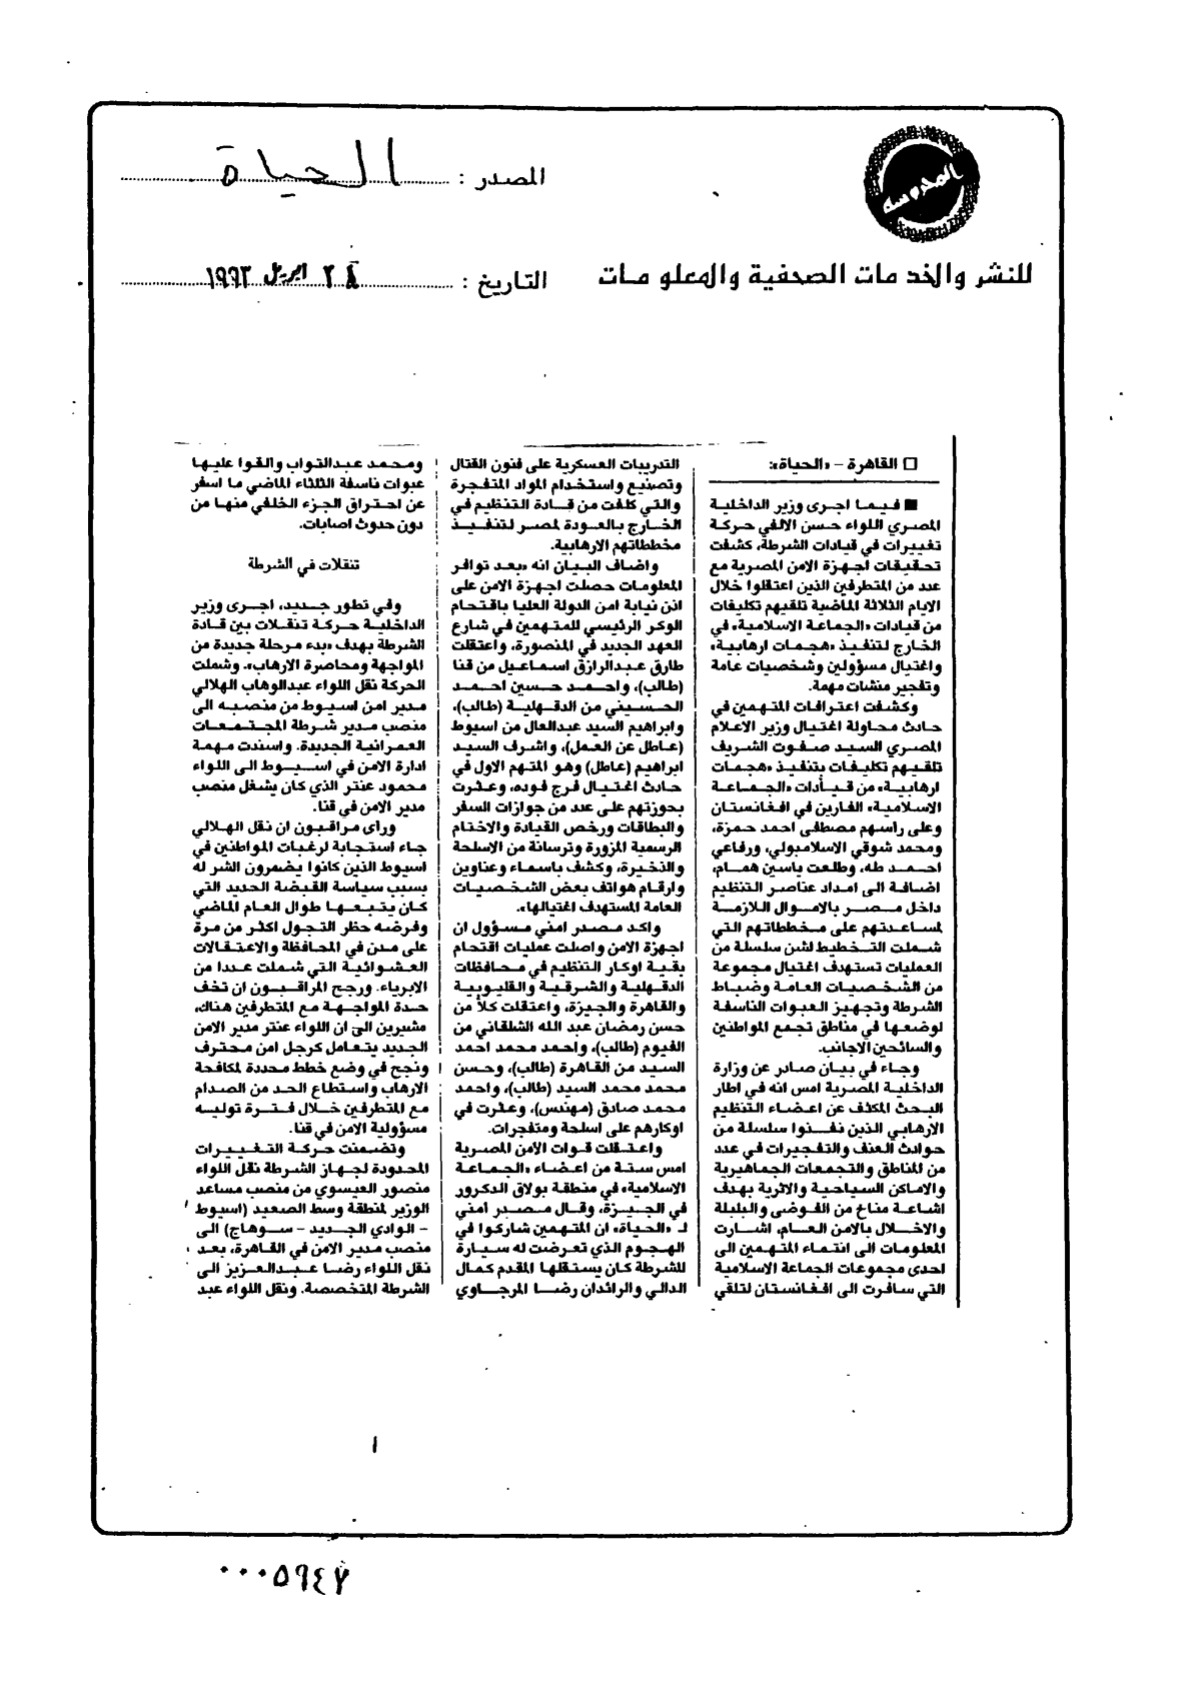 المحروسة
المصدر : الحياة
للنشر والخدمات الصحفية والمعلومات
التاريخ : ٢٨ ابريل ١٩٩٣
□ القاهرة - «الحياة»:
■ فيما اجرى وزير الداخلية
المصري اللواء حسن الالفي حركة
تغييرات في قيادات الشرطة، كشفت
تحقيقات اجهزة الامن المصرية مع
عدد من المتطرفين الذين اعتقلوا خلال
الايام الثلاثة الماضية تلقيهم تكليفات
من قيادات «الجماعة الاسلامية» في
الخارج لتنفيذ «هجمات ارهابية»
واغتيال مسؤولين وشخصيات عامة
وتفجير منشات مهمة.
وكشفت اعترافات المتهمين في
حادث محاولة اغتيال وزير الاعلام
المصري السيد صفوت الشريف
تلقيهم تكليفات بتنفيذ «هجمات
ارهابية» من قيادات «الجماعة
الاسلامية» الفارين في افغانستان
وعلى راسهم مصطفى احمد حمزة،
ومحمد شوقي الاسلامبولي، ورفاعي
احمد طه، وطلعت ياسين همام،
اضافة الى امداد عناصر التنظيم
داخل مصر بالاموال اللازمة
لمساعدتهم على مخططاتهم التي
شملت التخطيط لشن سلسلة من
العمليات تستهدف اغتيال مجموعة
من الشخصيات العامة وضباط
الشرطة وتجهيز العبوات الناسفة
لوضعها في مناطق تجمع المواطنين
والسائحين الاجانب.
وجاء في بيان صادر عن وزارة
الداخلية المصرية امس انه في اطار
البحث المكثف عن اعضاء التنظيم
الارهابي الذين نفذوا سلسلة من
حوادث العنف والتفجيرات في عدد
من المناطق والتجمعات الجماهيرية
والاماكن السياحية والاثرية بهدف
اشاعة مناخ من الفوضى والبلبلة
والاخلال بالامن العام، اشارت
المعلومات الى انتماء المتهمين الى
احدى مجموعات الجماعة الاسلامية
التي سافرت الى افغانستان لتلقي
التدريبات العسكرية على فنون القتال
وتصنيع واستخدام المواد المتفجرة
والتي كلفت من قادة التنظيم في
الخارج بالعودة لمصر لتنفيذ
مخططاتهم الارهابية.
واضاف البيان انه «بعد توافر
المعلومات حصلت اجهزة الامن على
اذن نيابة امن الدولة العليا باقتحام
الوكر الرئيسي للمتهمين في شارع
العهد الجديد في المنصورة، واعتقلت
طارق عبدالرازق اسماعيل من قنا
(طالب)، واحمد حسين احمد
الحسيني من الدقهلية (طالب)،
وابراهيم السيد عبدالعال من اسيوط
(عاطل عن العمل)، واشرف السيد
ابراهيم (عاطل) وهو المتهم الاول في
حادث اغتيال فرج فوده، وعثرت
بحوزتهم على عدد من جوازات السفر
والبطاقات ورخص القيادة والاختام
الرسمية المزورة وترسانة من الاسلحة
والذخيرة، وكشف باسماء وعناوين
وارقام هواتف بعض الشخصيات
العامة المستهدف اغتيالها».
واكد مصدر امني مسؤول ان
اجهزة الامن واصلت عمليات اقتحام
بقية اوكار التنظيم في محافظات
الدقهلية والشرقية والقليوبية
والقاهرة والجيزة، واعتقلت كلاً من
حسن رمضان عبد الله الشلقاني من
الفيوم (طالب)، واحمد محمد احمد
السيد من القاهرة (طالب)، وحسن
محمد محمد السيد (طالب)، واحمد
محمد صادق (مهندس)، وعثرت في
اوكارهم على اسلحة ومتفجرات.
واعتقلت قوات الامن المصرية
امس ستة من اعضاء «الجماعة
الاسلامية» في منطقة بولاق الدكرور
في الجيزة، وقال مصدر امني
لـ «الحياة» ان المتهمين شاركوا في
الهجوم الذي تعرضت له سيارة
للشرطة كان يستقلها المقدم كمال
الدالي والرائدان رضا المرجاوي
ومحمد عبدالتواب والقوا عليها
عبوات ناسفة الثلثاء الماضي ما اسفر
عن احتراق الجزء الخلفي منها من
دون حدوث اصابات.
تنقلات في الشرطة
وفي تطور جديد، اجرى وزير
الداخلية حركة تنقلات بين قادة
الشرطة بهدف «بدء مرحلة جديدة من
المواجهة ومحاصرة الارهاب». وشملت
الحركة نقل اللواء عبدالوهاب الهلالي
مدير امن اسيوط من منصبه الى
منصب مدير شرطة المجتمعات
العمرانية الجديدة. واسندت مهمة
ادارة الامن في اسيوط الى اللواء
محمود عنتر الذي كان يشغل منصب
مدير الامن في قنا.
وراى مراقبون ان نقل الهلالي
جاء استجابة لرغبات المواطنين في
اسيوط الذين كانوا يضمرون الشر له
بسبب سياسة القبضة الحديد التي
كان يتبعها طوال العام الماضي
وفرضه حظر التجول اكثر من مرة
على مدن في المحافظة والاعتقالات
العشوائية التي شملت عددا من
الابرياء. ورجح المراقبون ان تخف
حدة المواجهة مع المتطرفين هناك،
مشيرين الى ان اللواء عنتر مدير الامن
الجديد يتعامل كرجل امن محترف
ونجح في وضع خطط محددة لمكافحة
الارهاب واستطاع الحد من الصدام
مع المتطرفين خلال فترة توليه
مسؤولية الامن في قنا.
وتضمنت حركة التغييرات
المحدودة لجهاز الشرطة نقل اللواء
منصور العيسوي من منصب مساعد
الوزير لمنطقة وسط الصعيد (اسيوط
- الوادي الجديد - سوهاج) الى
منصب مدير الامن في القاهرة، بعد
نقل اللواء رضا عبدالعزيز الى
الشرطة المتخصصة. ونقل اللواء عبد
١
٠٠٠٥٩٤٧